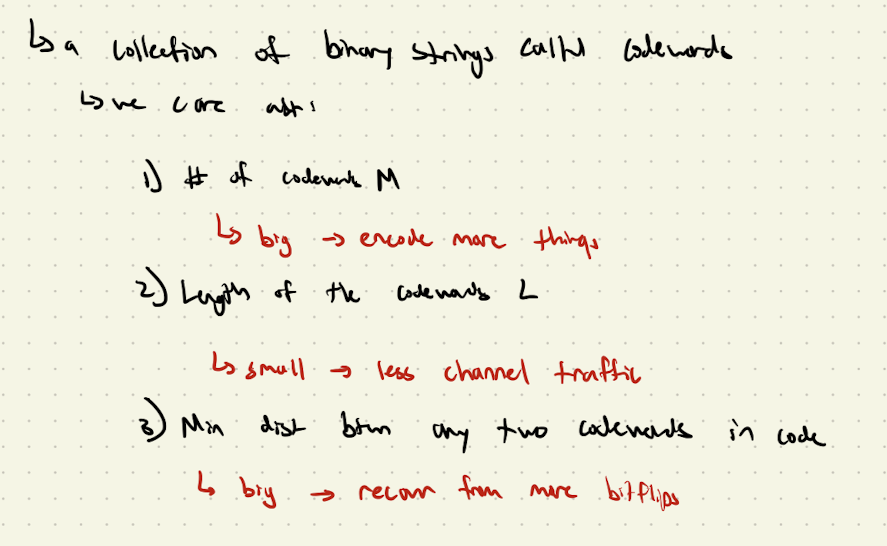 ↳ a collection of binary strings called codewords
↳ we care abt:
1) # of codewords M
↳ big → encode more things
2) Length of the codewords L
↳ small → less channel traffic
3) Min dist btwn any two codewords in code
↳ big → recover from more bitflips